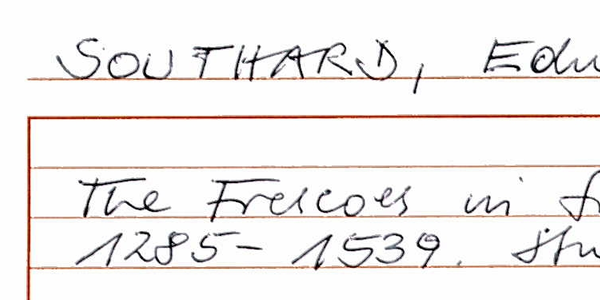 SOUTHARD, Edw
The Frescoes in
1285-1539. Stu